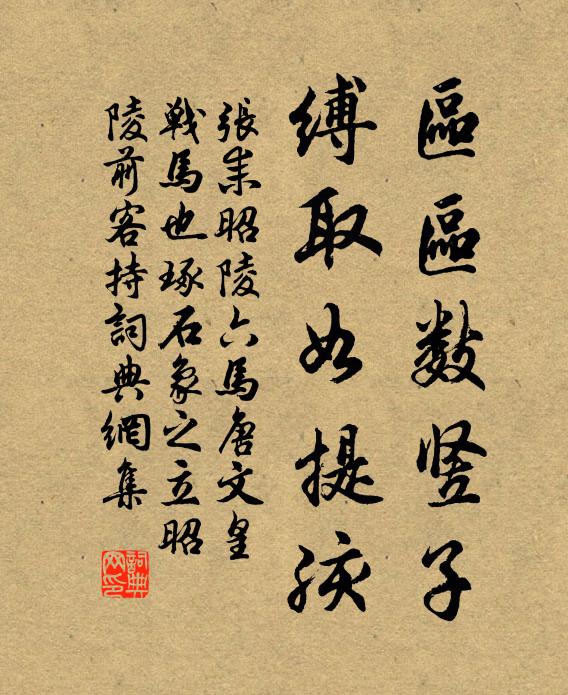 區區數豎子
縛取如提孩
張耒昭陵六馬唐文皇
戰馬也琢石象之立昭
陵前客持詞典網集
詞典網印